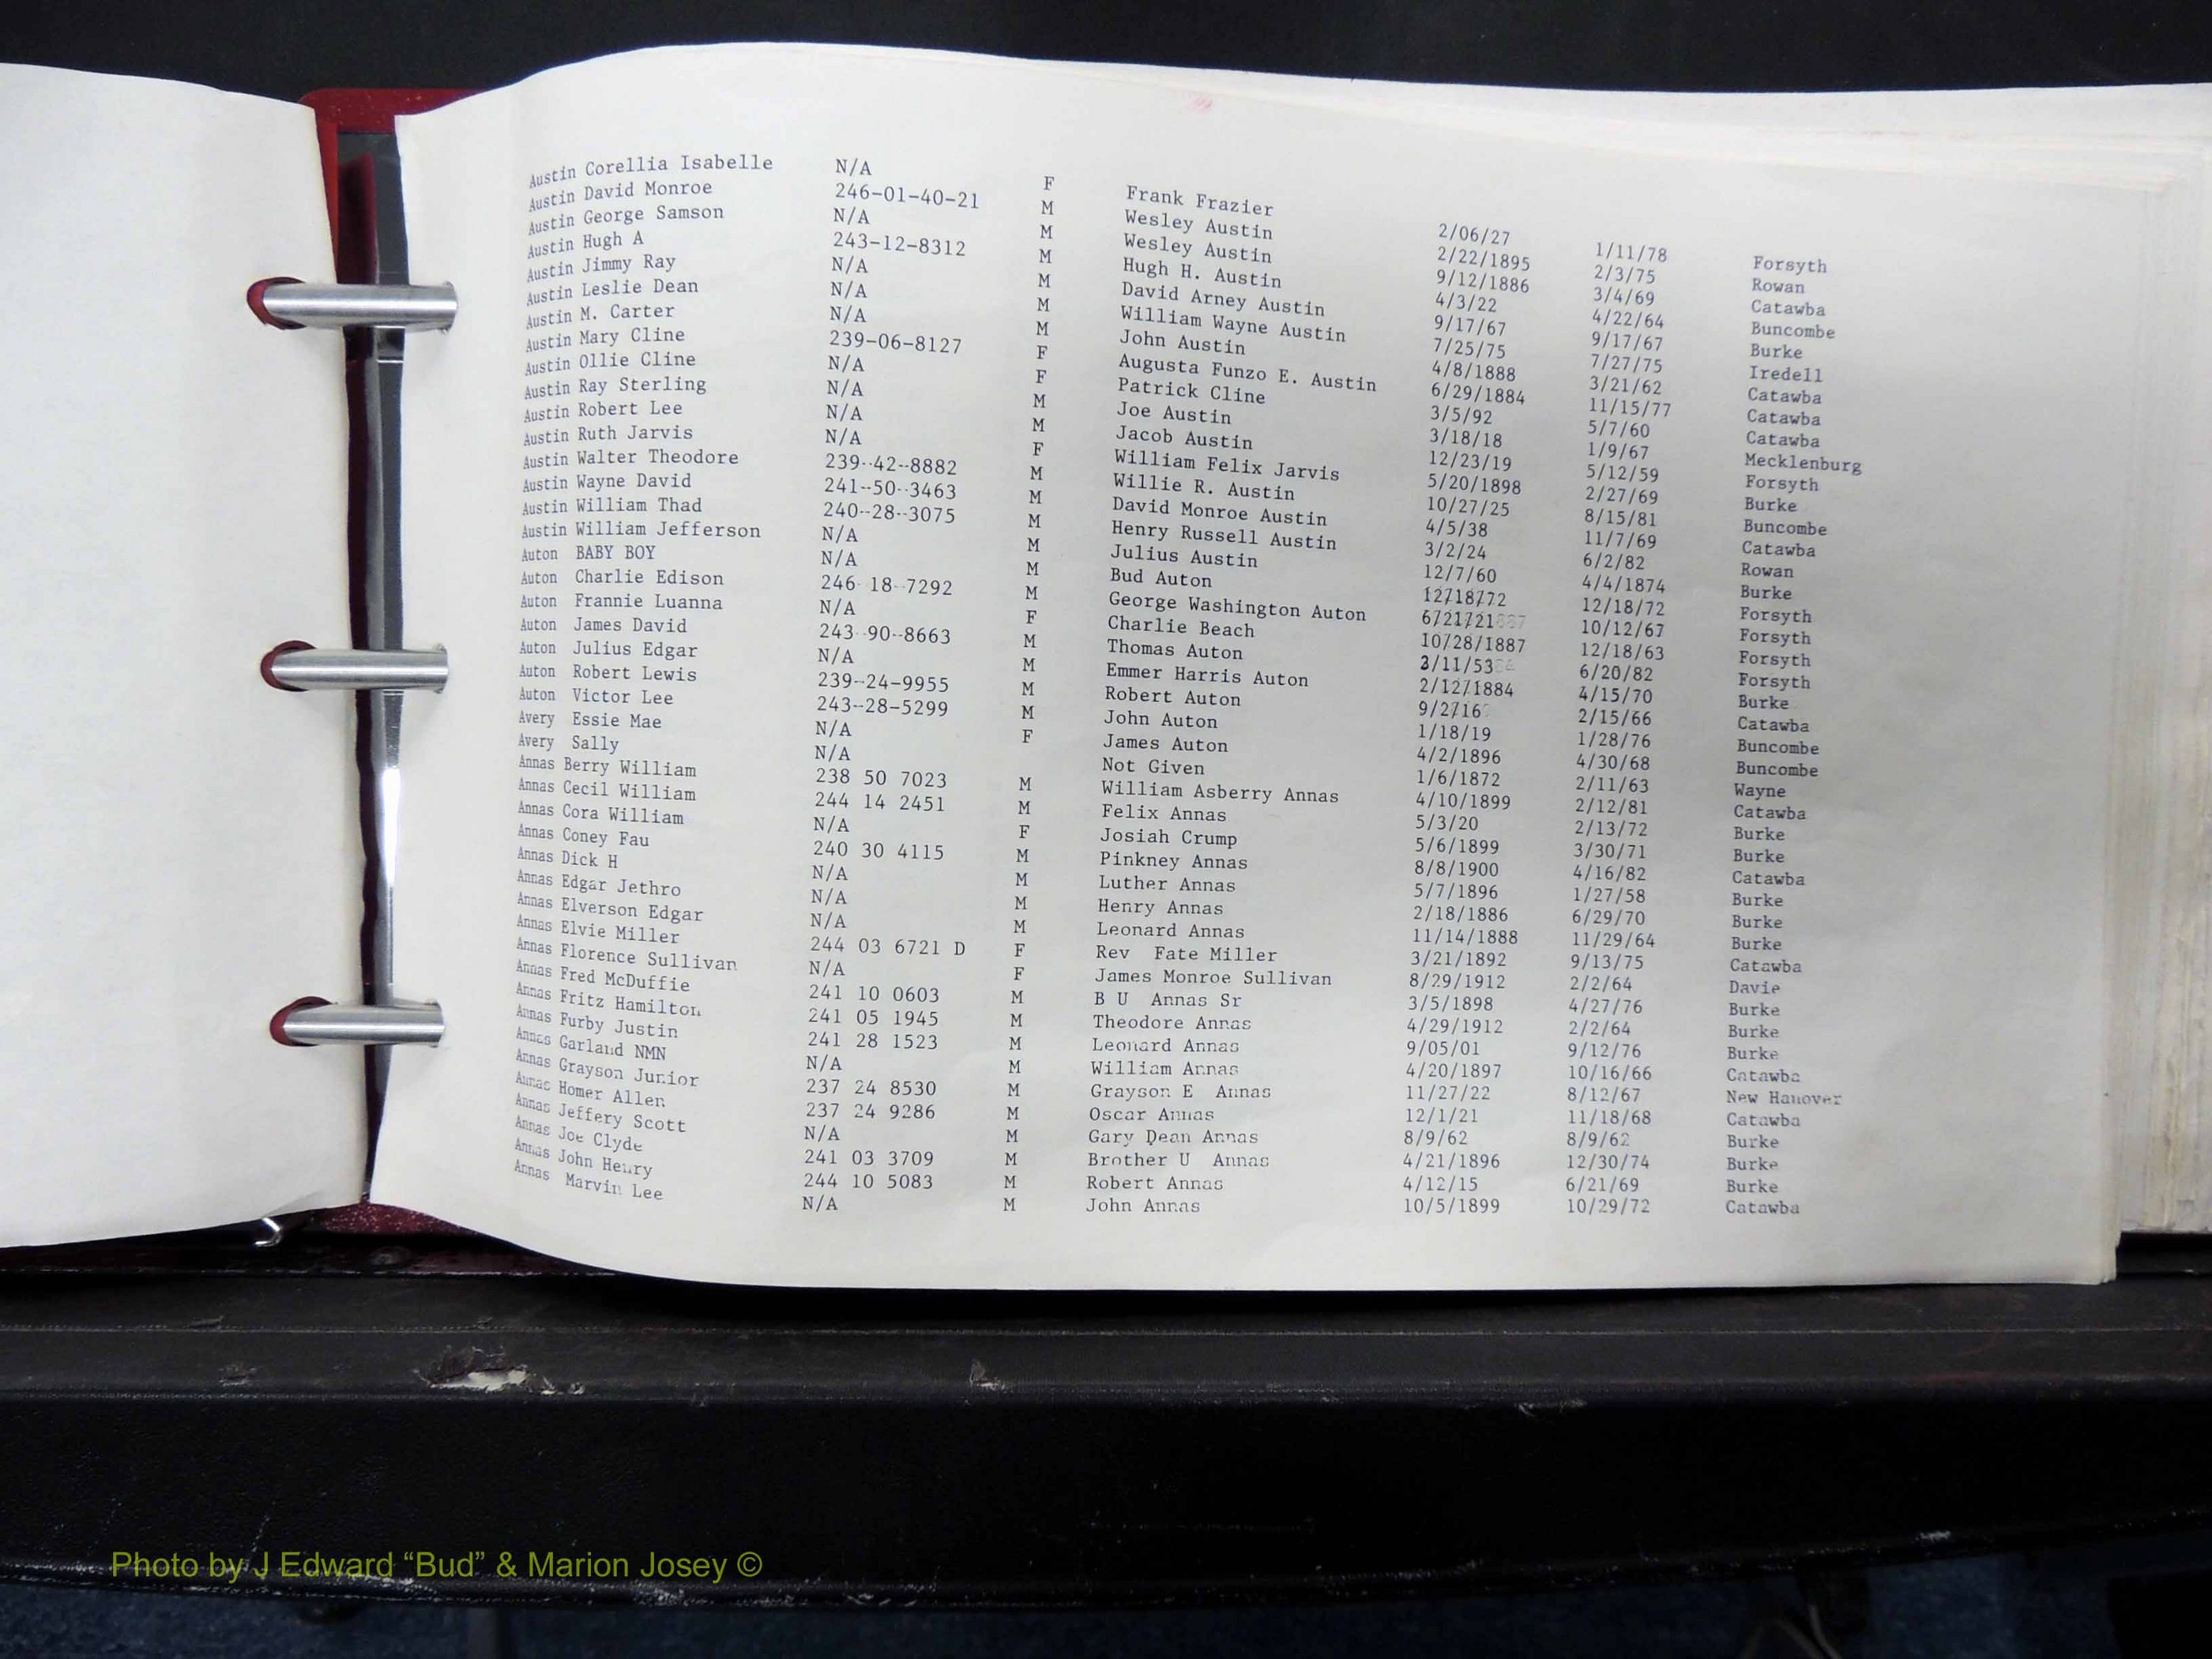 Austin Corellia Isabelle N/A F Frank Frazier 2/06/27 1/11/78 Forsyth
Austin David Monroe 246-01-40-21 M Wesley Austin 2/22/1895 2/3/75 Rowan
Austin George Samson N/A M Wesley Austin 9/12/1886 3/4/69 Catawba
Austin Hugh A 243-12-8312 M Hugh H. Austin 4/3/22 4/22/64 Buncombe
Austin Jimmy Ray N/A M David Arney Austin 9/17/67 9/17/67 Burke
Austin Leslie Dean N/A M William Wayne Austin 7/25/75 7/27/75 Iredell
Austin M. Carter N/A M John Austin 4/8/1888 3/21/62 Catawba
Austin Mary Cline 239-06-8127 F Augusta Funzo E. Austin 6/29/1884 11/15/77 Catawba
Austin Ollie Cline N/A F Patrick Cline 3/5/92 5/7/60 Catawba
Austin Ray Sterling N/A M Joe Austin 3/18/18 1/9/67 Mecklenburg
Austin Robert Lee N/A M Jacob Austin 12/23/19 5/12/59 Forsyth
Austin Ruth Jarvis N/A F William Felix Jarvis 5/20/1898 2/27/69 Burke
Austin Walter Theodore 239-42-8882 M Willie R. Austin 10/27/25 8/15/81 Buncombe
Austin Wayne David 241-50-3463 M David Monroe Austin 4/5/38 11/7/69 Catawba
Austin William Thad 240-28-3075 M Henry Russell Austin 3/2/24 6/2/82 Rowan
Austin William Jefferson N/A M Julius Austin 12/7/60 4/4/1874 Burke
Auton BABY BOY N/A M Bud Auton 12/18/72 12/18/72 Forsyth
Auton Charlie Edison 246-18-7292 M George Washington Auton 6/21/21 10/12/67 Forsyth
Auton Frannie Luanna N/A F Charlie Beach 10/28/1887 12/18/63 Forsyth
Auton James David 243-90-8663 M Thomas Auton 6/20/82 Forsyth
Auton Julius Edgar N/A M Emmer Harris Auton 2/12/1884 4/15/70 Burke
Auton Robert Lewis 239-24-9955 M Robert Auton 9/2/16 2/15/66 Catawba
Auton Victor Lee 243-28-5299 M John Auton 1/18/19 1/28/76 Buncombe
Avery Essie Mae N/A F James Auton 4/2/1896 4/30/68 Buncombe
Avery Sally N/A Not Given 1/6/1872 2/11/63 Wayne
Annas Berry William 238 50 7023 M William Asberry Annas 4/10/1899 2/12/81 Catawba
Annas Cecil William 244 14 2451 M Felix Annas 5/3/20 2/13/72 Burke
Annas Cora William N/A F Josiah Crump 5/6/1899 3/30/71 Burke
Annas Coney Fau 240 30 4115 M Pinkney Annas 8/8/1900 4/16/82 Catawba
Annas Dick H N/A M Luther Annas 5/7/1896 1/27/58 Burke
Annas Edgar Jethro N/A M Henry Annas 2/18/1886 6/29/70 Burke
Annas Elverson Edgar N/A M Leonard Annas 11/14/1888 11/29/64 Burke
Annas Elvie Miller 244 03 6721 D F Rev Fate Miller 3/21/1892 9/13/75 Catawba
Annas Florence Sullivan N/A F James Monroe Sullivan 8/29/1912 2/2/64 Davie
Annas Fred McDuffie 241 10 0603 M B U Annas Sr 3/5/1898 4/27/76 Burke
Annas Fritz Hamilton 241 05 1945 M Theodore Annas 4/29/1912 2/2/64 Burke
Annas Furby Justin 241 28 1523 M Leonard Annas 9/05/01 9/12/76 Burke
Annas Garland NMN N/A M William Annas 4/20/1897 10/16/66 Catawba
Annas Grayson Junior 237 24 8530 M Grayson E Annas 11/27/22 8/12/67 New Hanover
Annas Homer Allen 237 24 9286 M Oscar Annas 12/1/21 11/18/68 Catawba
Annas Jeffery Scott N/A M Gary Dean Annas 8/9/62 8/9/62 Burke
Annas Joe Clyde 241 03 3709 M Brother U Annas 4/21/1896 12/30/74 Burke
Annas John Henry 244 10 5083 M Robert Annas 4/12/15 6/21/69 Burke
Annas Marvin Lee N/A M John Annas 10/5/1899 10/29/72 Catawba
Photo by J Edward “Bud” & Marion Josey ©